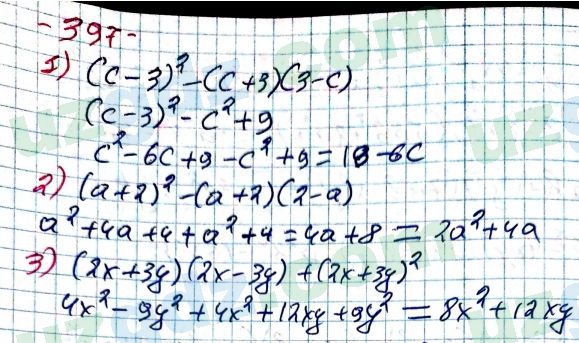 -397-
1) (c-3)² -(c+3)(3-c)
(c-3)² - c² + 9
c² - 6c + 9 - c² + 9 = 18 - 6c
2) (a+2)² -(a+2)(2-a)
a² + 4a + 4 + a² + 4 = 4a + 8 = 2a² + 4a
3) (2x+3y)(2x-3y) + (2x+3y)²
4x² - 9y² + 4x² + 12xy + 9y² = 8x² + 12xy